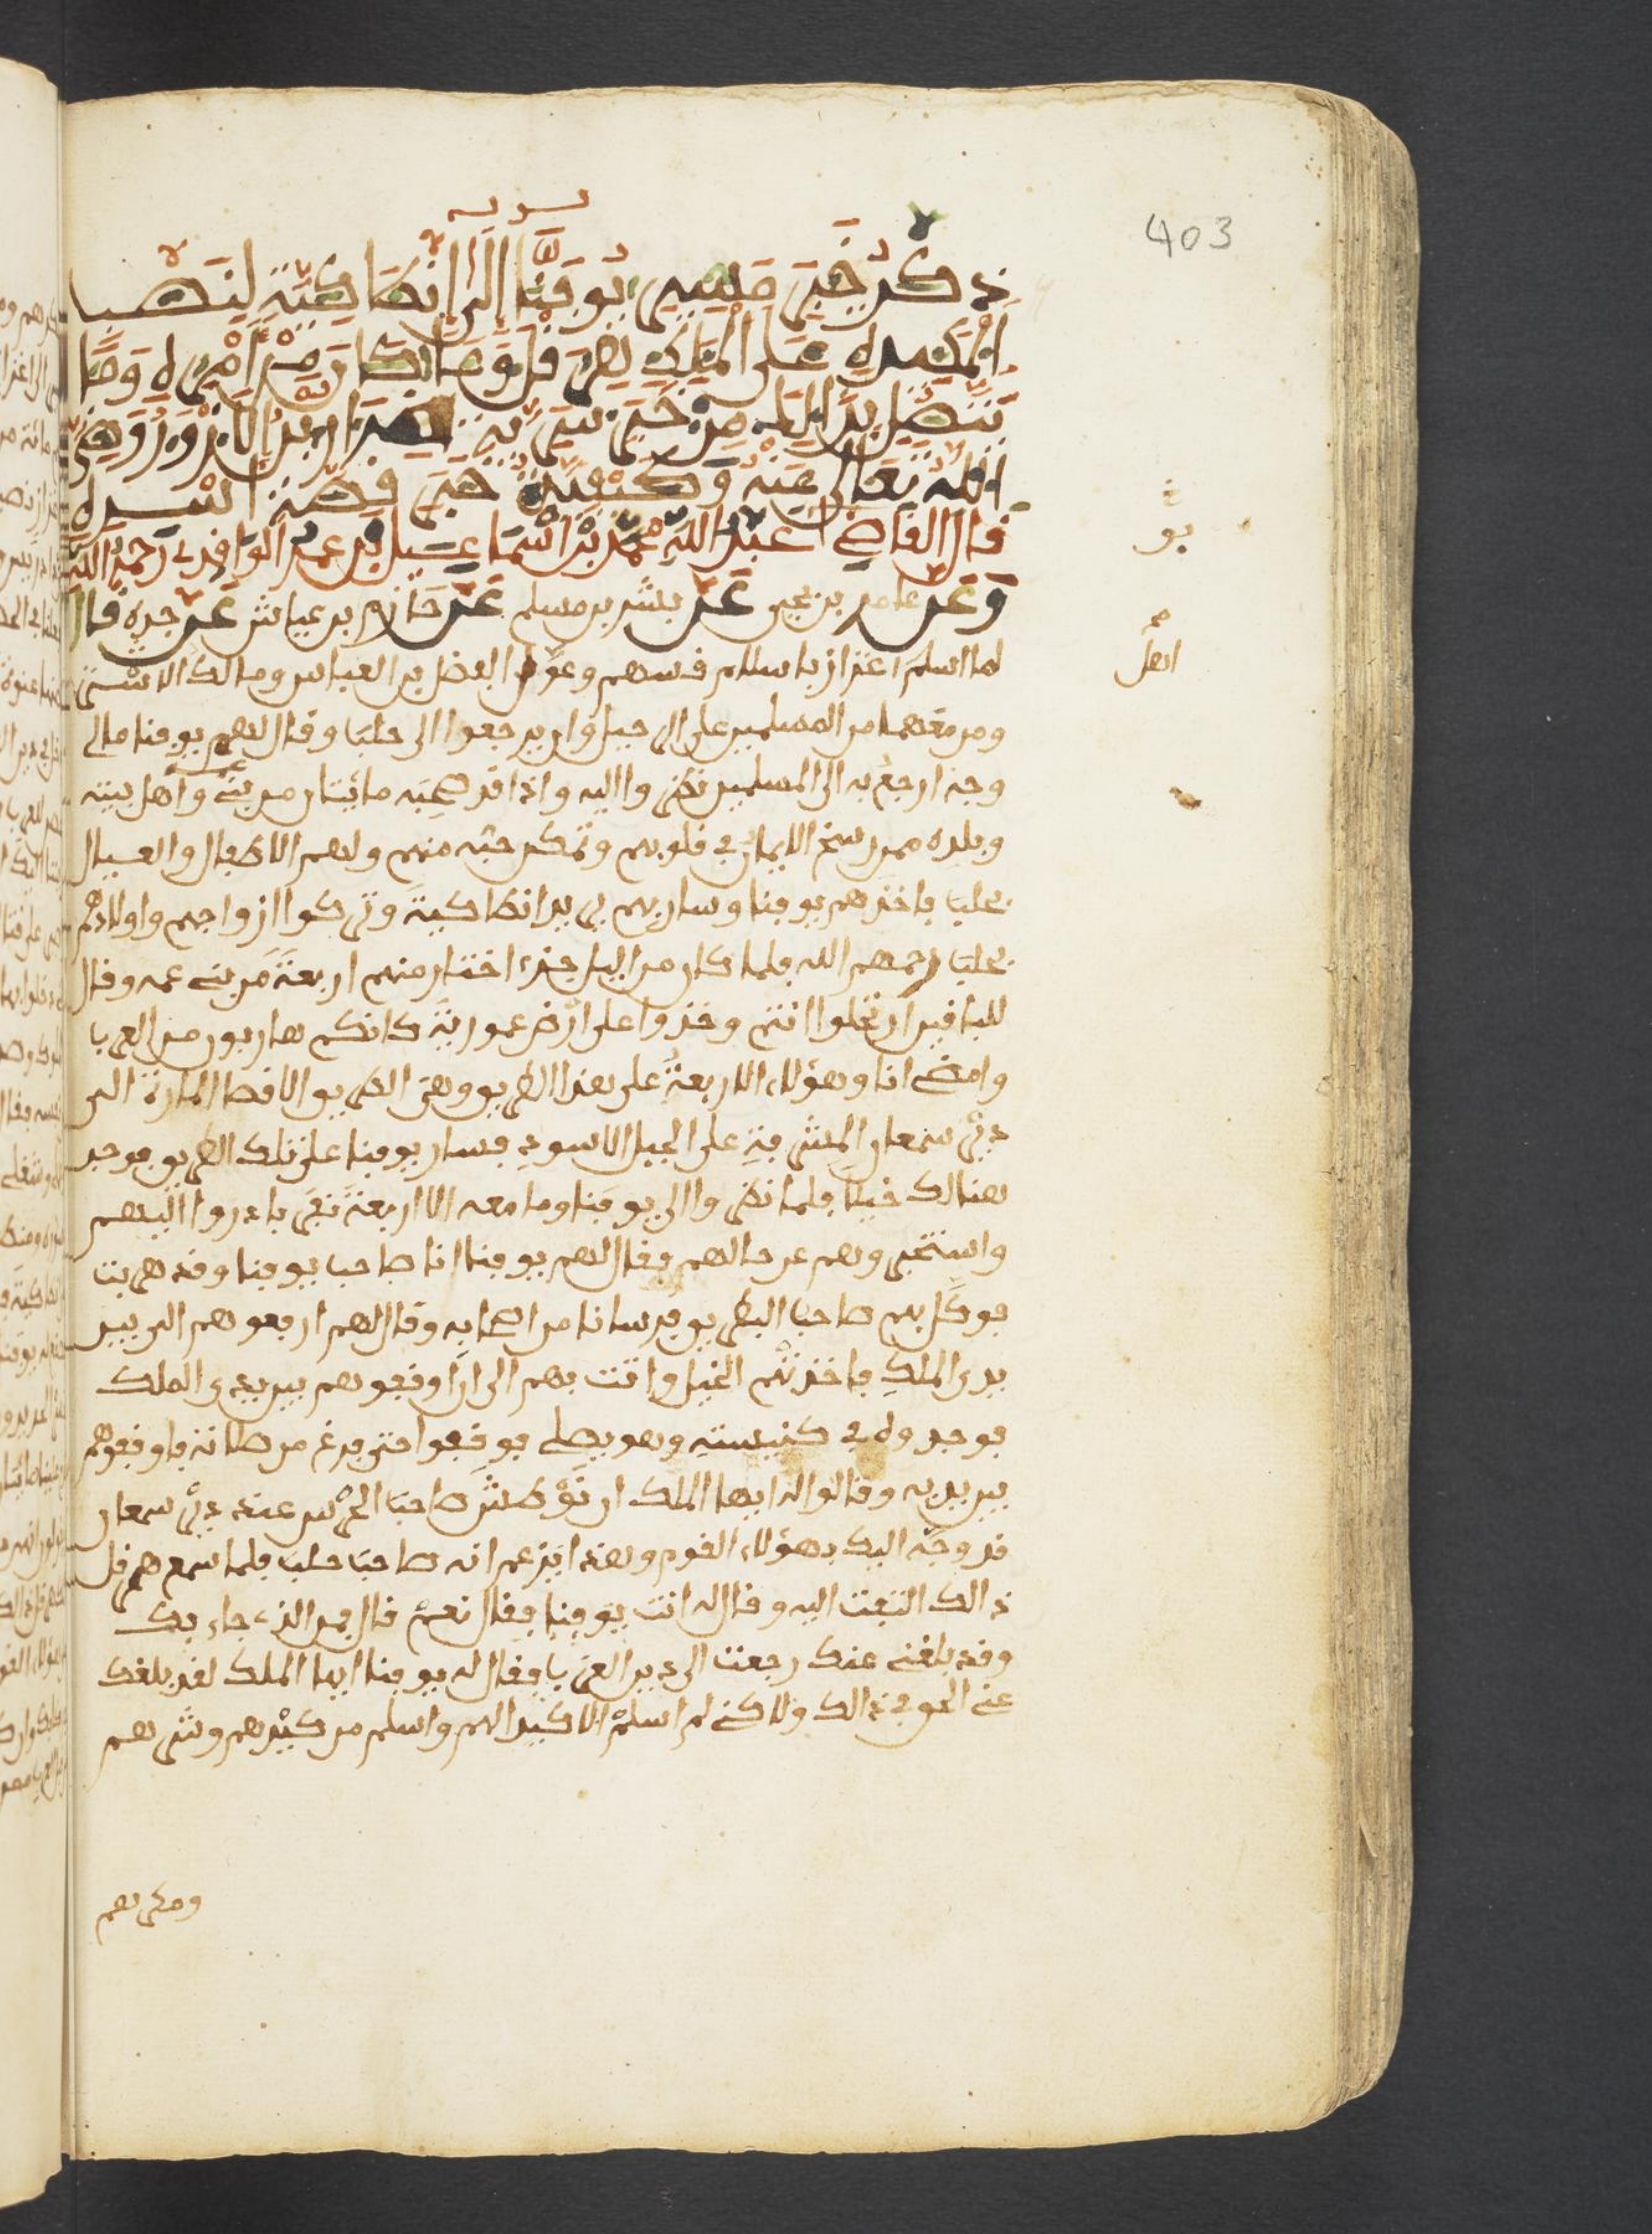 403
ذكر خبر مسير يوقنا إلى انطاكية لينصب
المكيدة على الملك هرقل وما كان من أمره وما
يتصل بذلك من خبر سرية ضرار بن الازور رضي
الله تعالى عنه وكيفية خبر قصة أسره
قال القاضي عبد الله محمد بن اسماعيل بن عمر الواقدي رحمه الله
وعن عامر بن يحيى عن بشر بن مسلم عن حازم بن عياش عن جده قال
لما اسلم اعزاز باسلام قسهم وعول الفضل بن العباس ومالك الاشتر
ومن معهما من المسلمين على الرحيل وان يرجعوا الى حلب وقال لهم يوقنا مالي
وجه ارجع به الى المسلمين نظروا اليه واذا قد صحبه مائتان من بني عمه وأهل بيته
وبلده ممن رسخ الايمان في قلوبهم وتمكن حبه منهم ولهم الاطفال والعيال
بحلب فاخذهم يوقنا وسار بهم يريد انطاكية وتركوا ازواجهم واولادهم
بحلب رحمهم الله فلما كان من اليل جزء اختار منهم اربعة من بني عمه وقال
للباقين ارتحلوا انتم وخذوا على ارض عمورية كانكم هاربون من العرب
وامضي انا وهؤلاء الاربعة على هذا الطريق وهي الطريق الاقصا المارة الى
دير سمعان المشرفة على الجبل الاسود فسار يوقنا على تلك الطريق فوجد
هنالك خيلا فلما نظروا الى يوقنا وما معه الا اربعة نفر بادروا اليهم
واستخبروهم عن حالهم فقال لهم يوقنا انا صاحب يوقنا وقد هربت
فوكل بهم صاحب الطريق فرسانا من اصحابه وقال لهم ارفعوهم الى بين
يدي الملك فاخذتهم الخيل واتت بهم الى ان اوقفوهم بين يدي الملك
فوجدوه في كنيسته وهو يصلي فوقفوا حتى فرغ من صلاته فاوقفوهم
بين يديه وقالوا له ايها الملك ان صاحب الحرس عند دير سمعان
قد وجه اليك بهؤلاء القوم وهذا يزعم انه صاحب حلب فلما سمع هرقل
ذالك التفت اليه وقال له انت يوقنا فقال نعم قال فمن الذي جاء بك
وقد بلغني عنك رجعت الى دين العرب فقال له يوقنا ايها الملك لقد بلغك
عني الحق في ذالك ولاكني لم اسلم الا كيدا لهم واسلم من كيدهم وشرهم
ومكرهم